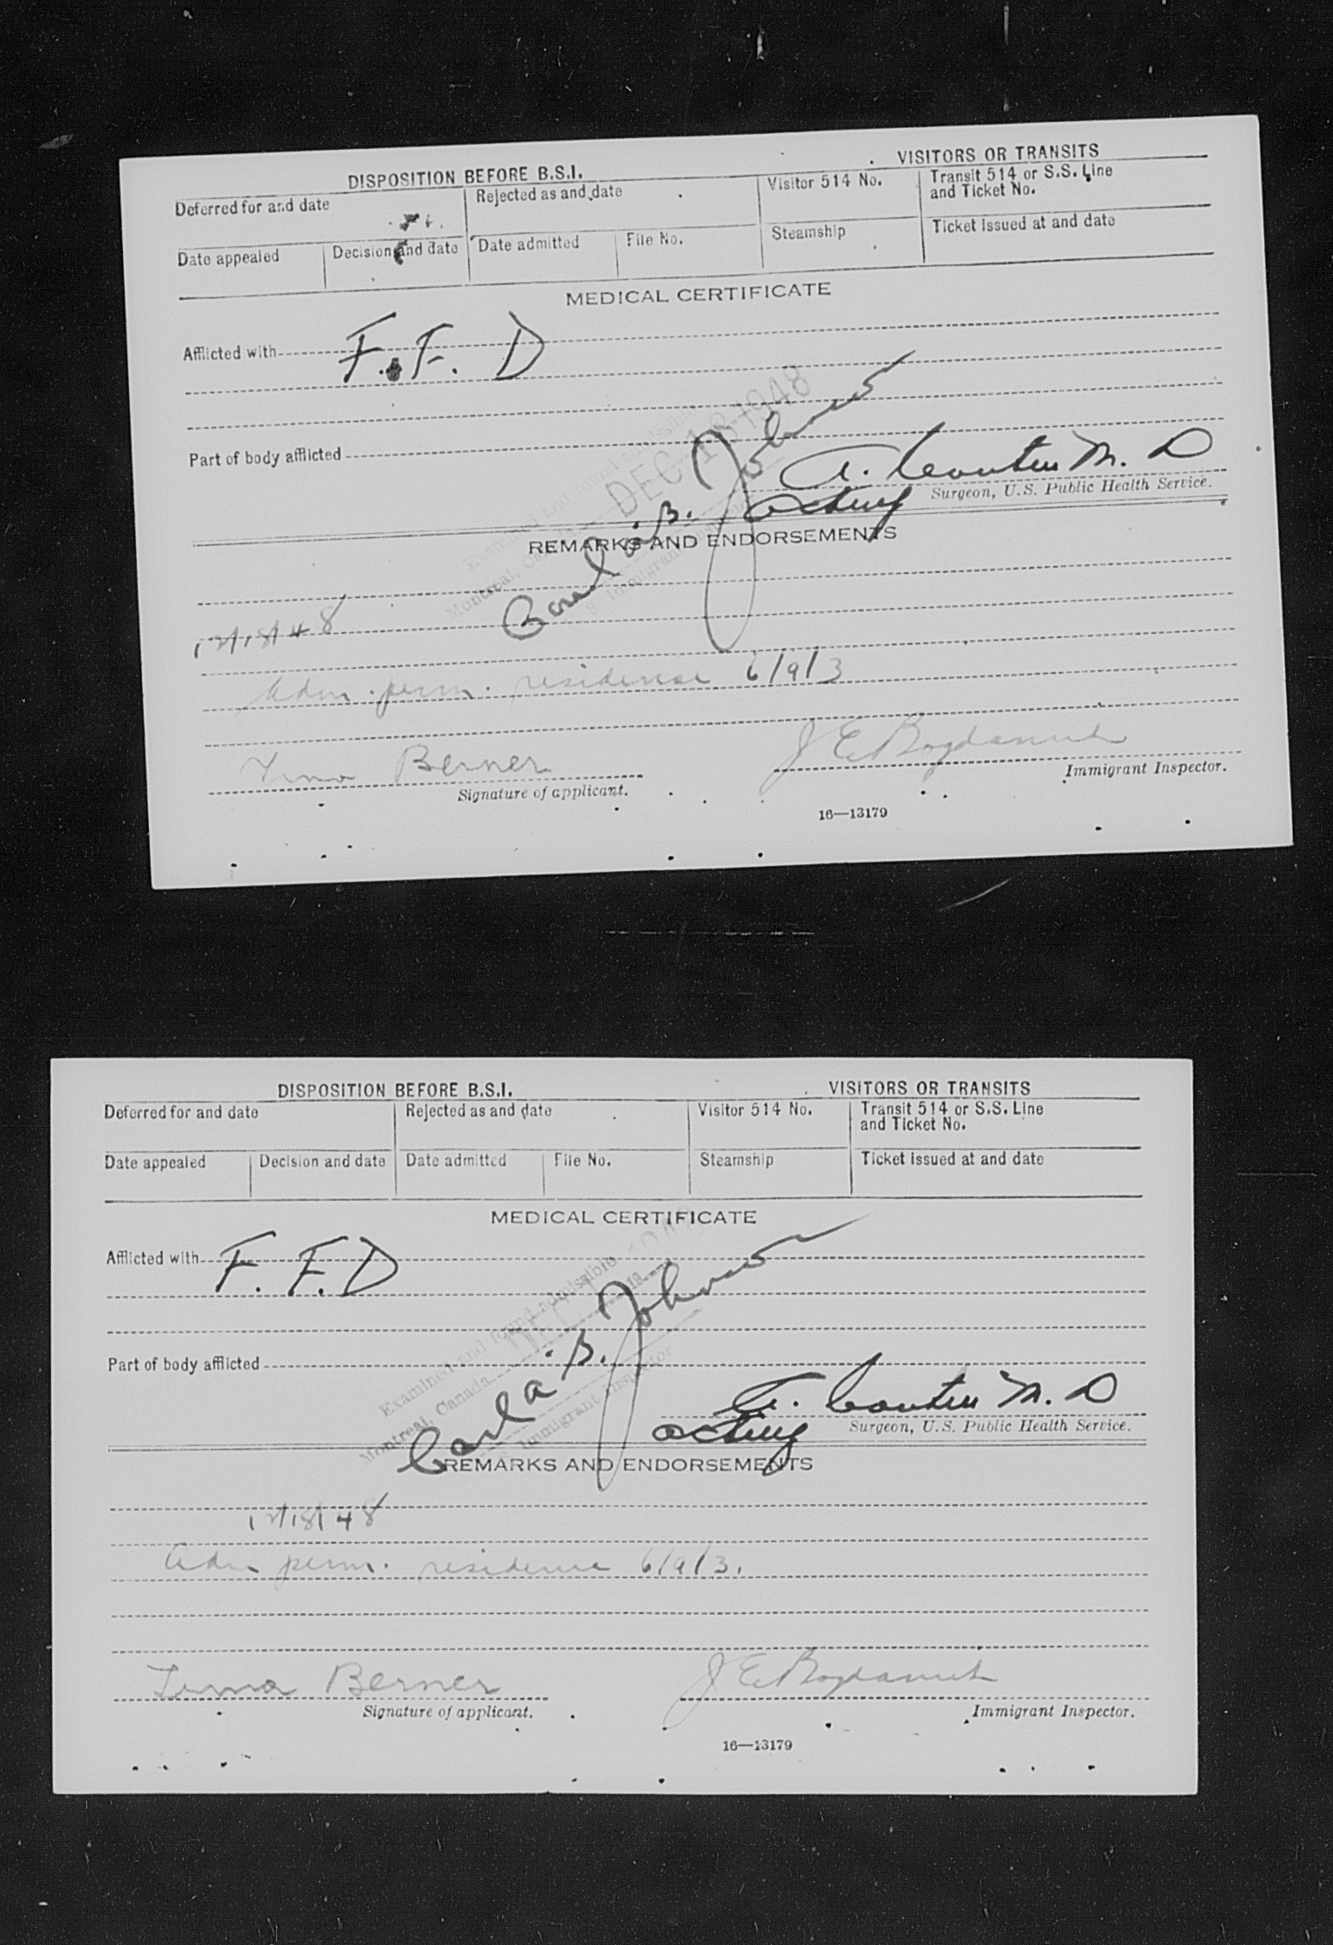 DISPOSITION BEFORE B.S.I.
VISITORS OR TRANSITS
Deferred for and date
Rejected as and date
Visitor 514 No.
Transit 514 or S.S. Line
and Ticket No.
Date appealed
Decision and date
Date admitted
File No.
Steamship
Ticket issued at and date
MEDICAL CERTIFICATE
Afflicted with F. F. D
DEC 18 1948
Part of body afflicted
Montreal, Canada
Carla B. Johnson
M. D
acting
Surgeon, U.S. Public Health Service.
REMARKS AND ENDORSEMENTS
12/18/48
Adm. perm. residence 6/9/3
Berner
Signature of applicant.
J E
Immigrant Inspector.
16—13179
DISPOSITION BEFORE B.S.I.
VISITORS OR TRANSITS
Deferred for and date
Rejected as and date
Visitor 514 No.
Transit 514 or S.S. Line
and Ticket No.
Date appealed
Decision and date
Date admitted
File No.
Steamship
Ticket issued at and date
MEDICAL CERTIFICATE
Afflicted with F. F. D
Examined and found admissible
Part of body afflicted
Montreal, Canada
Immigrant Inspector
Carla B. Johnson
M. D
acting
Surgeon, U.S. Public Health Service.
REMARKS AND ENDORSEMENTS
12/18/48
Adm perm. residence 6/9/3.
Berner
Signature of applicant.
J E
Immigrant Inspector.
16—13179